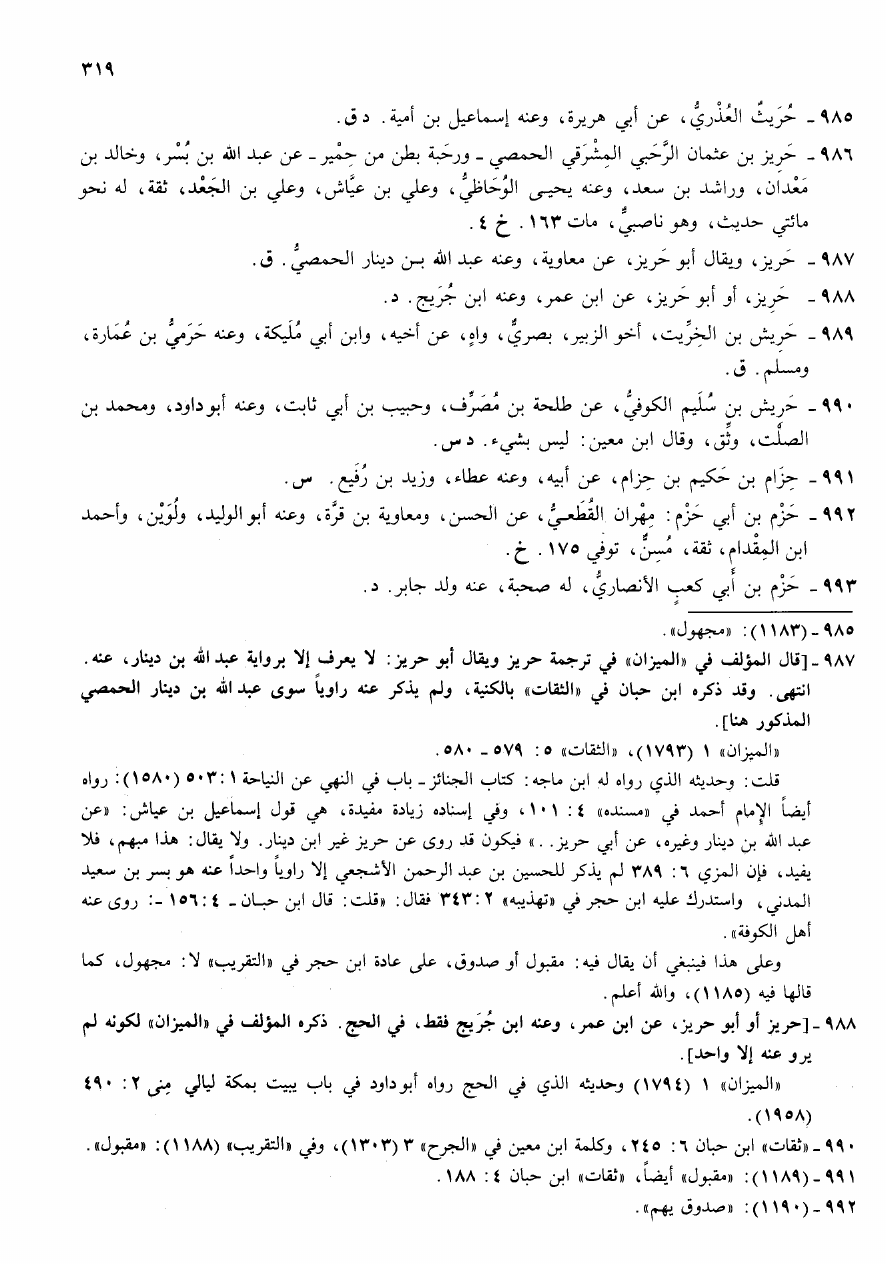 ٣١٩
٩٨٥ ـ حُرَيثٌ العُذْريُّ، عن أبي هريرة، وعنه إسماعيل بن أمية. د ق.
٩٨٦ ـ حَرِيز بن عثمان الرَّحَبي المِشْرَقي الحمصي ـ ورحَبة بطن من حِمْير ـ عن عبد الله بن بُسْر، وخالد بن
مَعْدان، وراشد بن سعد، وعنه يحيى الوُحَاظيُّ، وعلي بن عيَّاش، وعلي بن الجَعْد، ثقة، له نحو
مائتي حديث، وهو ناصبيٌّ، مات ١٦٣. خ ٤.
٩٨٧ ـ حَرِيز، ويقال أبو حَرِيز، عن معاوية، وعنه عبد الله بن دينار الحمصيُّ. ق.
٩٨٨ ـ حَرِيز، أو أبو حَرِيز، عن ابن عمر، وعنه ابن جُرَيج. د.
٩٨٩ ـ حَرِيش بن الخِرِّيت، أخو الزبير، بصريٌّ، واهٍ، عن أخيه، وابن أبي مُلَيكة، وعنه حَرَميُّ بن عُمَارة،
ومسلم. ق.
٩٩٠ ـ حَرِيش بن سُلَيم الكوفيُّ، عن طلحة بن مُصَرِّف، وحبيب بن أبي ثابت، وعنه أبو داود، ومحمد بن
الصلْت، وثِّق، وقال ابن معين: ليس بشيء. د س.
٩٩١ ـ حِزَام بن حَكيم بن حِزام، عن أبيه، وعنه عطاء، وزيد بن رُفَيع. س.
٩٩٢ ـ حَزْم بن أبي حَزْم: مِهْران القُطَعيُّ، عن الحسن، ومعاوية بن قرَّة، وعنه أبو الوليد، ولُوَيْن، وأحمد
ابن المِقْدام، ثقة، مُسِنٌّ، توفي ١٧٥. خ.
٩٩٣ ـ حَزْم بن أَبي كعبٍ الأنصاريُّ، له صحبة، عنه ولد جابر. د.
٩٨٥ ـ (١١٨٣): «مجهول».
٩٨٧ ـ [قال المؤلف في «الميزان» في ترجمة حريز ويقال أبو حريز: لا يعرف إلا برواية عبد الله بن دينار، عنه.
انتهى. وقد ذكره ابن حبان في «الثقات» بالكنية، ولم يذكر عنه راوياً سوى عبد الله بن دينار الحمصي
المذكور هنا].
«الميزان» ١ (١٧٩٣)، «الثقات» ٥: ٥٧٩ ـ ٥٨٠.
قلت: وحديثه الذي رواه له ابن ماجه: كتاب الجنائز ـ باب في النهي عن النياحة ١: ٥٠٣ (١٥٨٠): رواه
أيضاً الإمام أحمد في «مسنده» ٤: ١٠١، وفي إسناده زيادة مفيدة، هي قول إسماعيل بن عياش: «عن
عبد الله بن دينار وغيره، عن أبي حريز..» فيكون قد روى عن حريز غير ابن دينار. ولا يقال: هذا مبهم، فلا
يفيد، فإن المزي ٦: ٣٨٩ لم يذكر للحسين بن عبد الرحمن الأشجعي إلا راوياً واحداً عنه هو بسر بن سعيد
المدني، واستدرك عليه ابن حجر في «تهذيبه» ٢: ٣٤٣ فقال: «قلت: قال ابن حبان ـ ٤: ١٥٦ ـ: روى عنه
أهل الكوفة».
وعلى هذا فينبغي أن يقال فيه: مقبول أو صدوق، على عادة ابن حجر في «التقريب» لا: مجهول، كما
قالها فيه (١١٨٥)، والله أعلم.
٩٨٨ ـ [حريز أو أبو حريز، عن ابن عمر، وعنه ابن جُرَيج فقط، في الحج. ذكره المؤلف في «الميزان» لكونه لم
يرو عنه إلا واحد].
«الميزان» ١ (١٧٩٤) وحديثه الذي في الحج رواه أبو داود في باب يبيت بمكة ليالي مِنى ٢: ٤٩٠
(١٩٥٨).
٩٩٠ ـ «ثقات» ابن حبان ٦: ٢٤٥، وكلمة ابن معين في «الجرح» ٣ (١٣٠٣)، وفي «التقريب» (١١٨٨): «مقبول».
٩٩١ ـ (١١٨٩): «مقبول» أيضاً، «ثقات» ابن حبان ٤: ١٨٨.
٩٩٢ ـ (١١٩٠): «صدوق يهم».